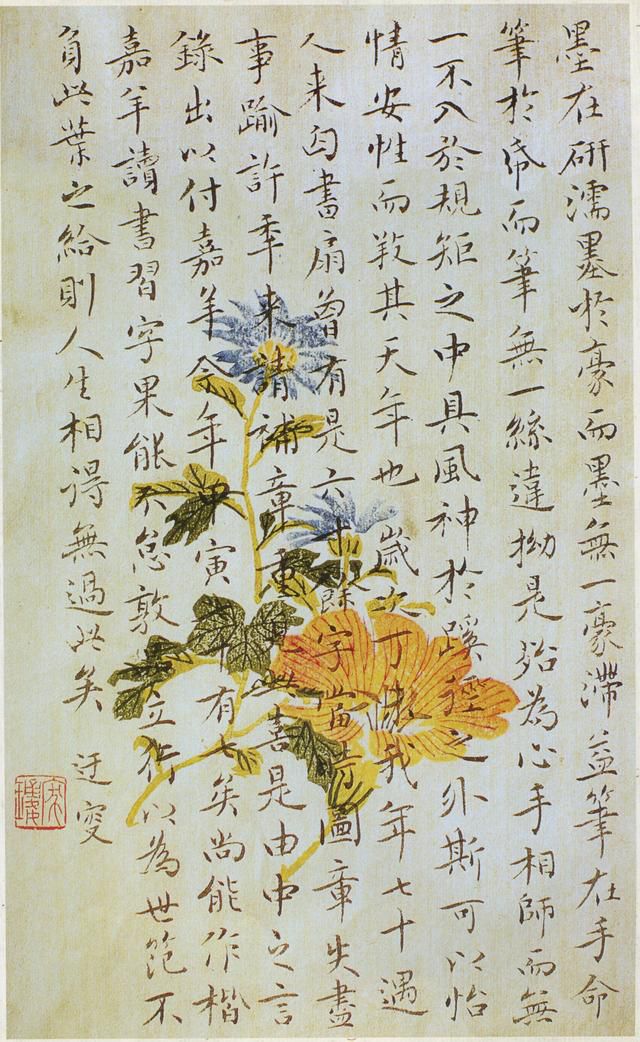 墨在研濡墨於豪而墨無一豪滯益筆在手命
筆於帋而筆無一絲違拗是殆為心手相師而無
一不入於規矩之中具風神於蹊徑之外斯可以怡
情安性而養其天年也 歲次丁未我年七十遇
人来匃書扇曾有是六十餘字當時圖章失盡
事踰許秊来請補章重見此喜是由中之言
錄出以付嘉羊今年甲寅七十有七矣尚能作楷
嘉羊讀書習字果能不怠敦品立行以為世范不
負此葉之給則人生相得無過此矣 迂叜